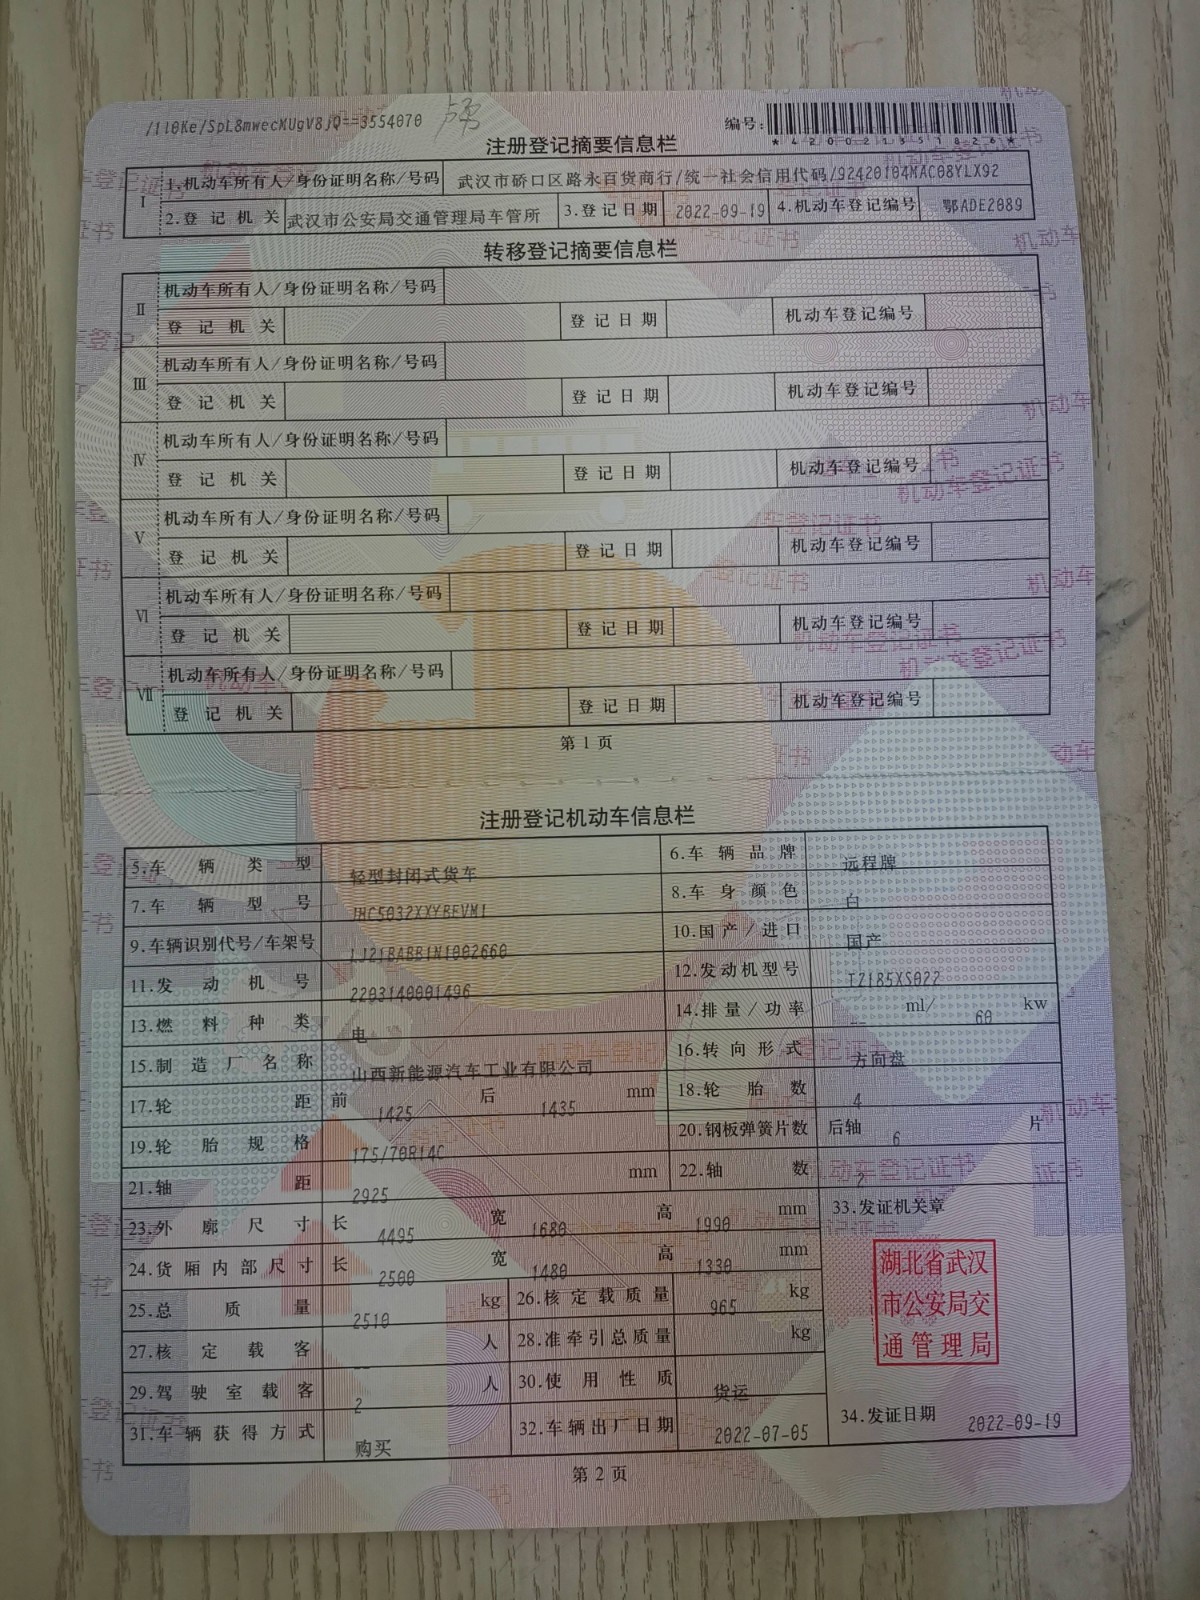 /1l0Ke/SpL8mwecMUgV8jQ==3554070
编号:
*420021351826*
注册登记摘要信息栏
I 1.机动车所有人/身份证明名称/号码 武汉市硚口区路永百货商行/统一社会信用代码/92420104MAC08YLX92
2.登记机关 武汉市公安局交通管理局车管所 3.登记日期 2022-09-19 4.机动车登记编号 鄂ADE2089
转移登记摘要信息栏
II 机动车所有人/身份证明名称/号码
登记机关 登记日期 机动车登记编号
III 机动车所有人/身份证明名称/号码
登记机关 登记日期 机动车登记编号
IV 机动车所有人/身份证明名称/号码
登记机关 登记日期 机动车登记编号
V 机动车所有人/身份证明名称/号码
登记机关 登记日期 机动车登记编号
VI 机动车所有人/身份证明名称/号码
登记机关 登记日期 机动车登记编号
VII 机动车所有人/身份证明名称/号码
登记机关 登记日期 机动车登记编号
第1页
注册登记机动车信息栏
5.车辆类型 轻型封闭式货车 6.车辆品牌 远程牌
7.车辆型号 JHC5032XXYBEVM1 8.车身颜色 白
9.车辆识别代号/车架号 10.国产/进口 国产
11.发动机号 2203140001496 12.发动机型号 TZ185XS022
13.燃料种类 电 14.排量/功率 -- ml/ 60 kw
15.制造厂名称 山西新能源汽车工业有限公司 16.转向形式 方向盘
17.轮距 前 1425 后 1435 mm 18.轮胎数 4
19.轮胎规格 175/70R14C 20.钢板弹簧片数 后轴 6 片
21.轴距 2925 mm 22.轴数 2
23.外廓尺寸 长 4495 宽 1680 高 1990 mm 33.发证机关章
24.货厢内部尺寸 长 2500 宽 1480 高 1330 mm
湖北省武汉
市公安局交
通管理局
25.总质量 2510 kg 26.核定载质量 965 kg
27.核定载客 -- 人 28.准牵引总质量 kg
29.驾驶室载客 2 人 30.使用性质 货运
31.车辆获得方式 购买 32.车辆出厂日期 2022-07-05 34.发证日期 2022-09-19
第2页